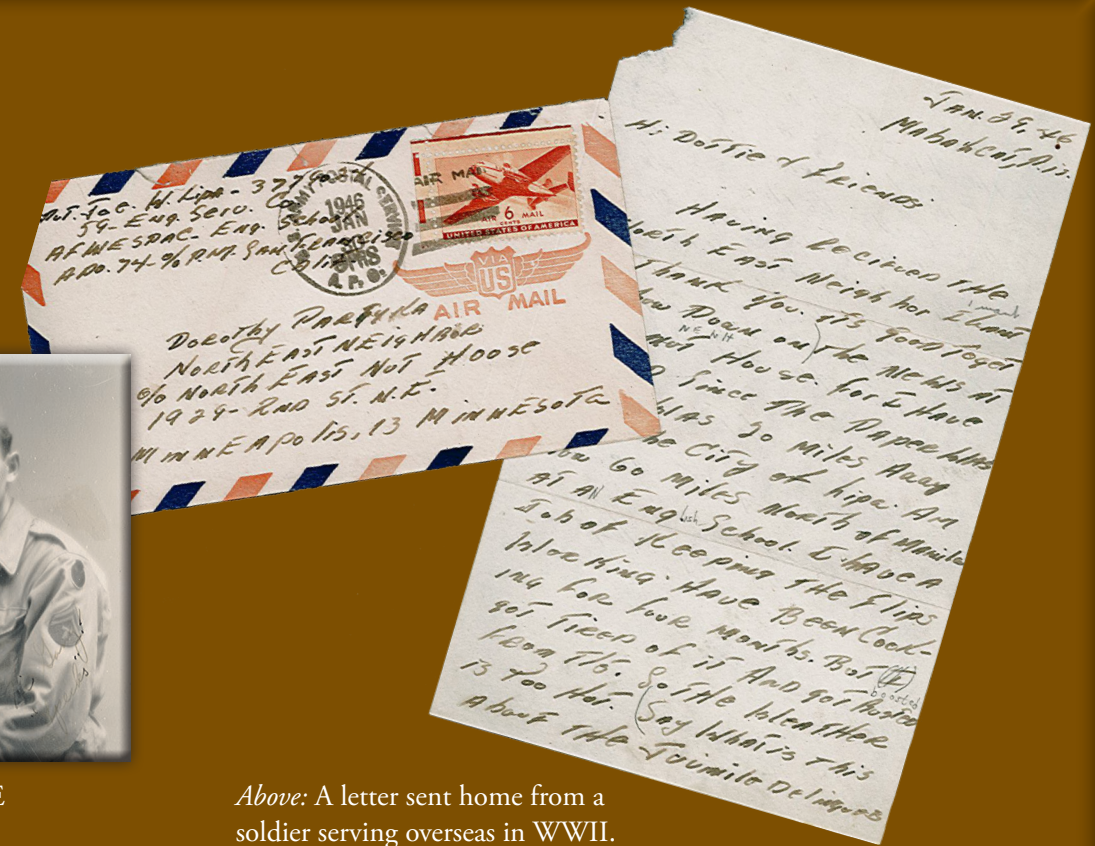 Pvt. Joe. W. Lipa -
59 - Eng. Serv. Co
AFWESPAC. Eng. School
APO. 74 - % P.M. San Francisco
U.S. ARMY POSTAL SERVICE
1946
JAN
A.P.O.
AIR MAIL
AIR 6 MAIL
CENTS
UNITED STATES OF AMERICA
VIA
US
AIR MAIL
Dorothy
NORTH EAST NEIGHBOR
% NORTH EAST NUT HOOSE
1929 - 2ND ST. N.E.
MINNEAPOLIS, 13 MINNESOTA
JAN. 29. 46
Hi DOTTIE & FRIENDS.
HAVING RECIEVED THE
NORTH EAST Neighbor I want
Thank You. it's GOOD TO GET
Down on The News AT
NENH
NUT HOUSE. for I HAVE
Since The Paper WAS
WAS 20 Miles AWAY
The City of Lipa. Am
60 Miles North of Manila
AT AN English School. I have A
Job of Keeping THE Flips
Working. HAVE BEEN COOK-
ING FOR FOUR MONTHS. BUT
GOT TIRED OF IT AND GOT Busted
FROM T/5. So THE WEATHER
IS TOO HOT. (SAY WHAT IS This
About THE
E
Above: A letter sent home from a
soldier serving overseas in WWII.